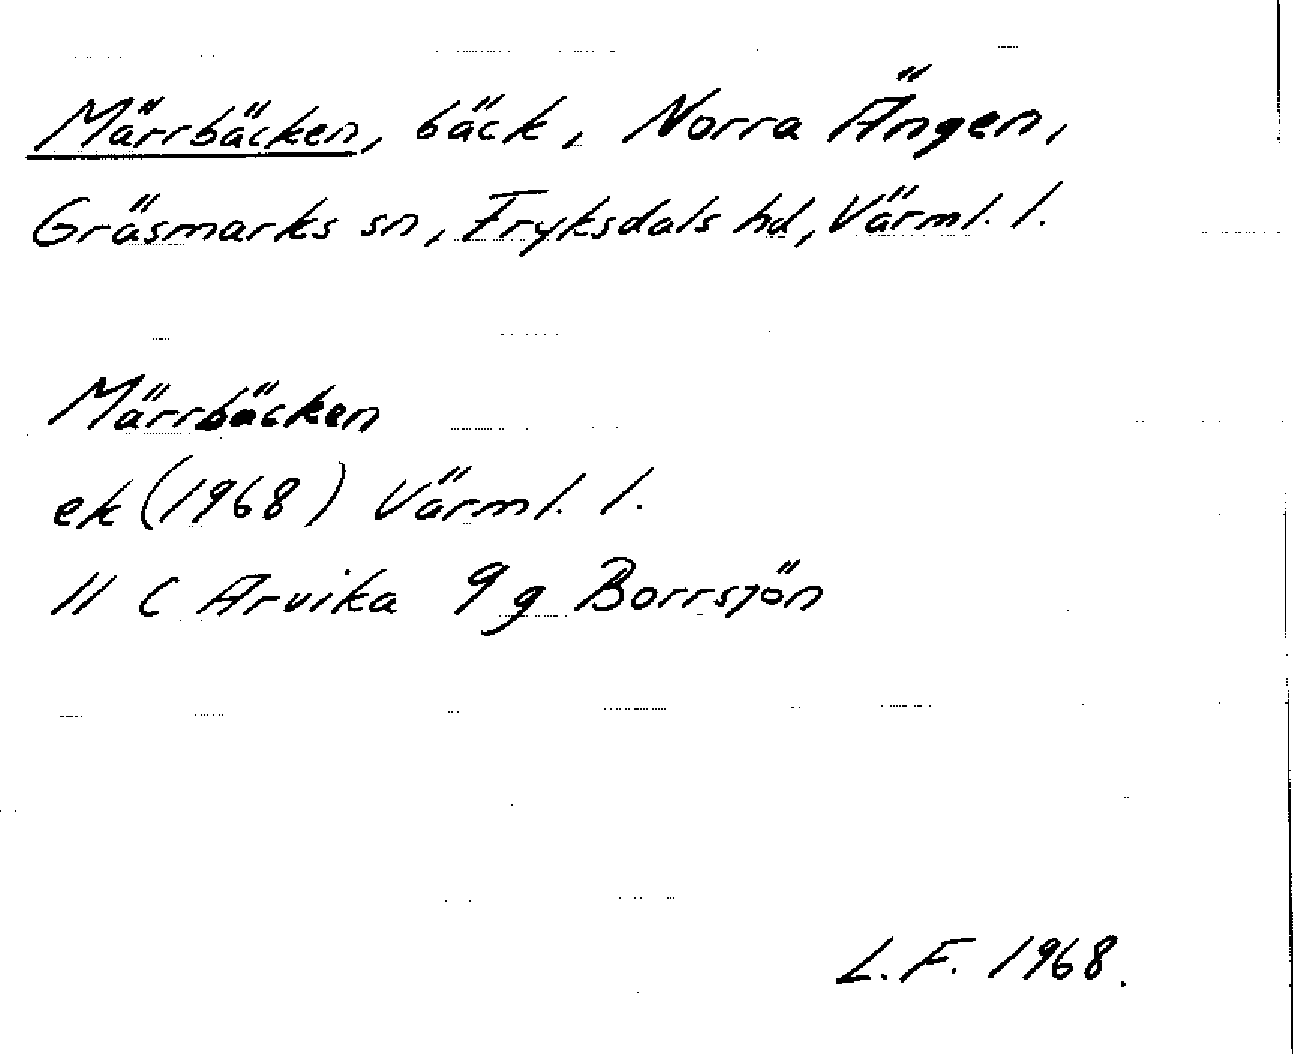 Märrbäcken, bäck, Norra Ängen,
Gräsmarks sn, Fryksdals hd, Värml. l.
Märrbäcken
ek (1968) Värml. l.
11 C Arvika 9 g Borrsjön
L.F. 1968.